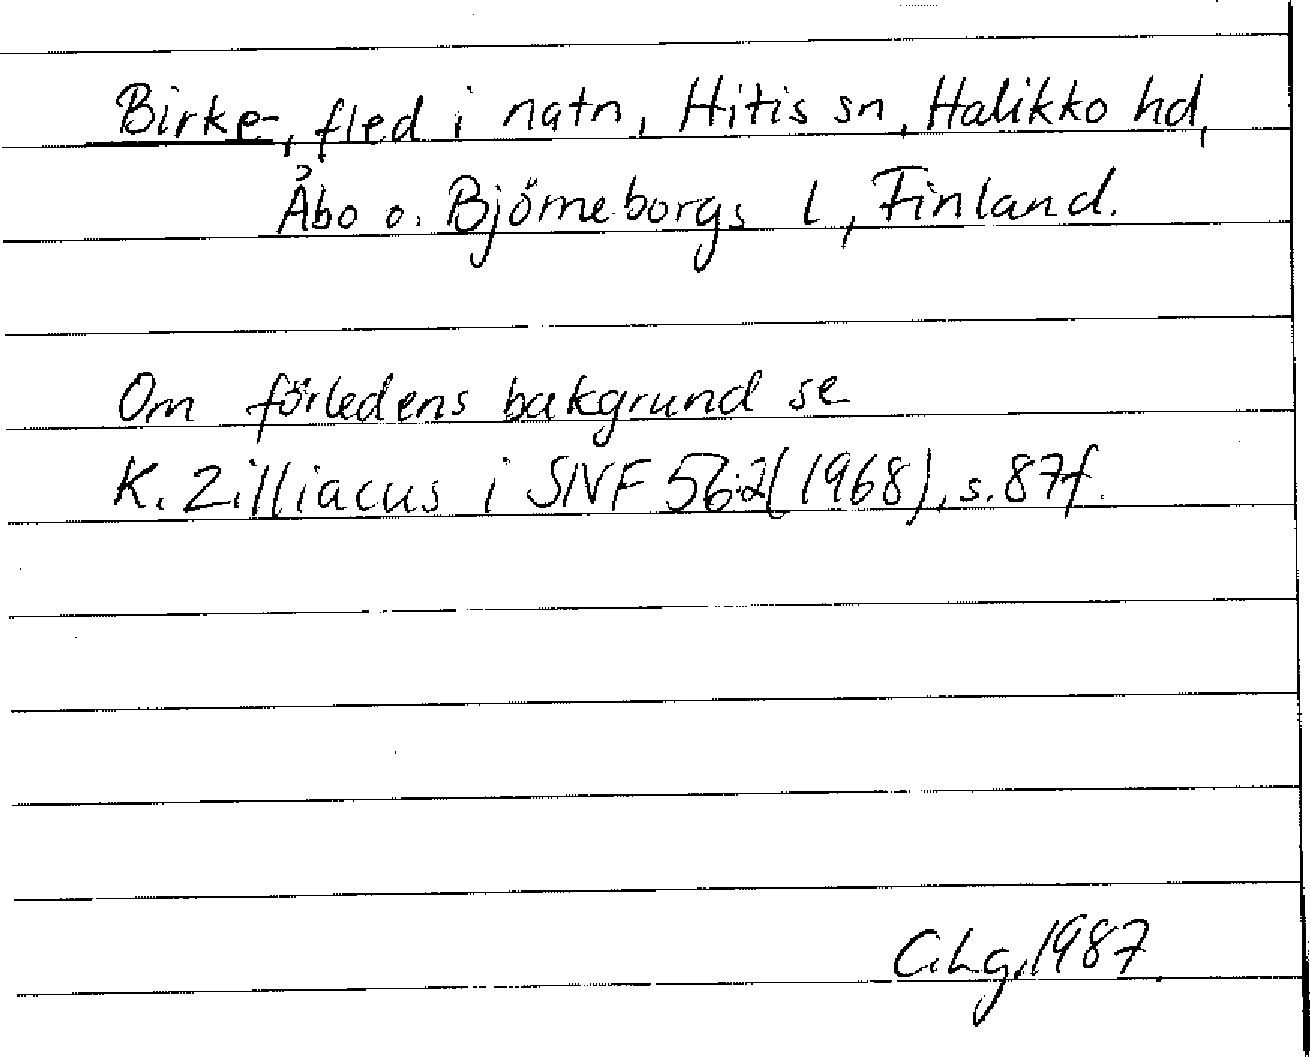 Birke-, fled i natn, Hitis sn, Halikko hd,
Åbo o. Björneborgs l, Finland.
Om förledens bakgrund se
K. Zilliacus i SNF 56:2(1968), s. 87f.
C.Lg.1987.